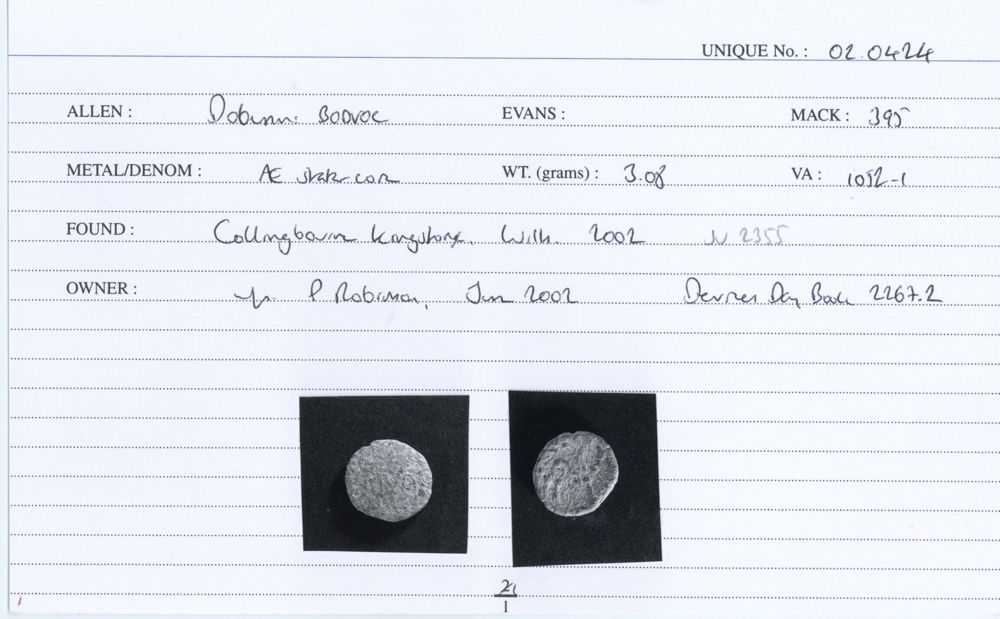 UNIQUE No. : 02.0424
ALLEN : Dobunni BODVOC EVANS : MACK : 395
METAL/DENOM : Æ stater core WT. (grams) : 3.08 VA : 1052-1
FOUND : Collingbourne Kingstone, Wilts. 2002 N 2355
OWNER : P Robinson, Jun 2002 Devizes Day Book 2267.2
2/1